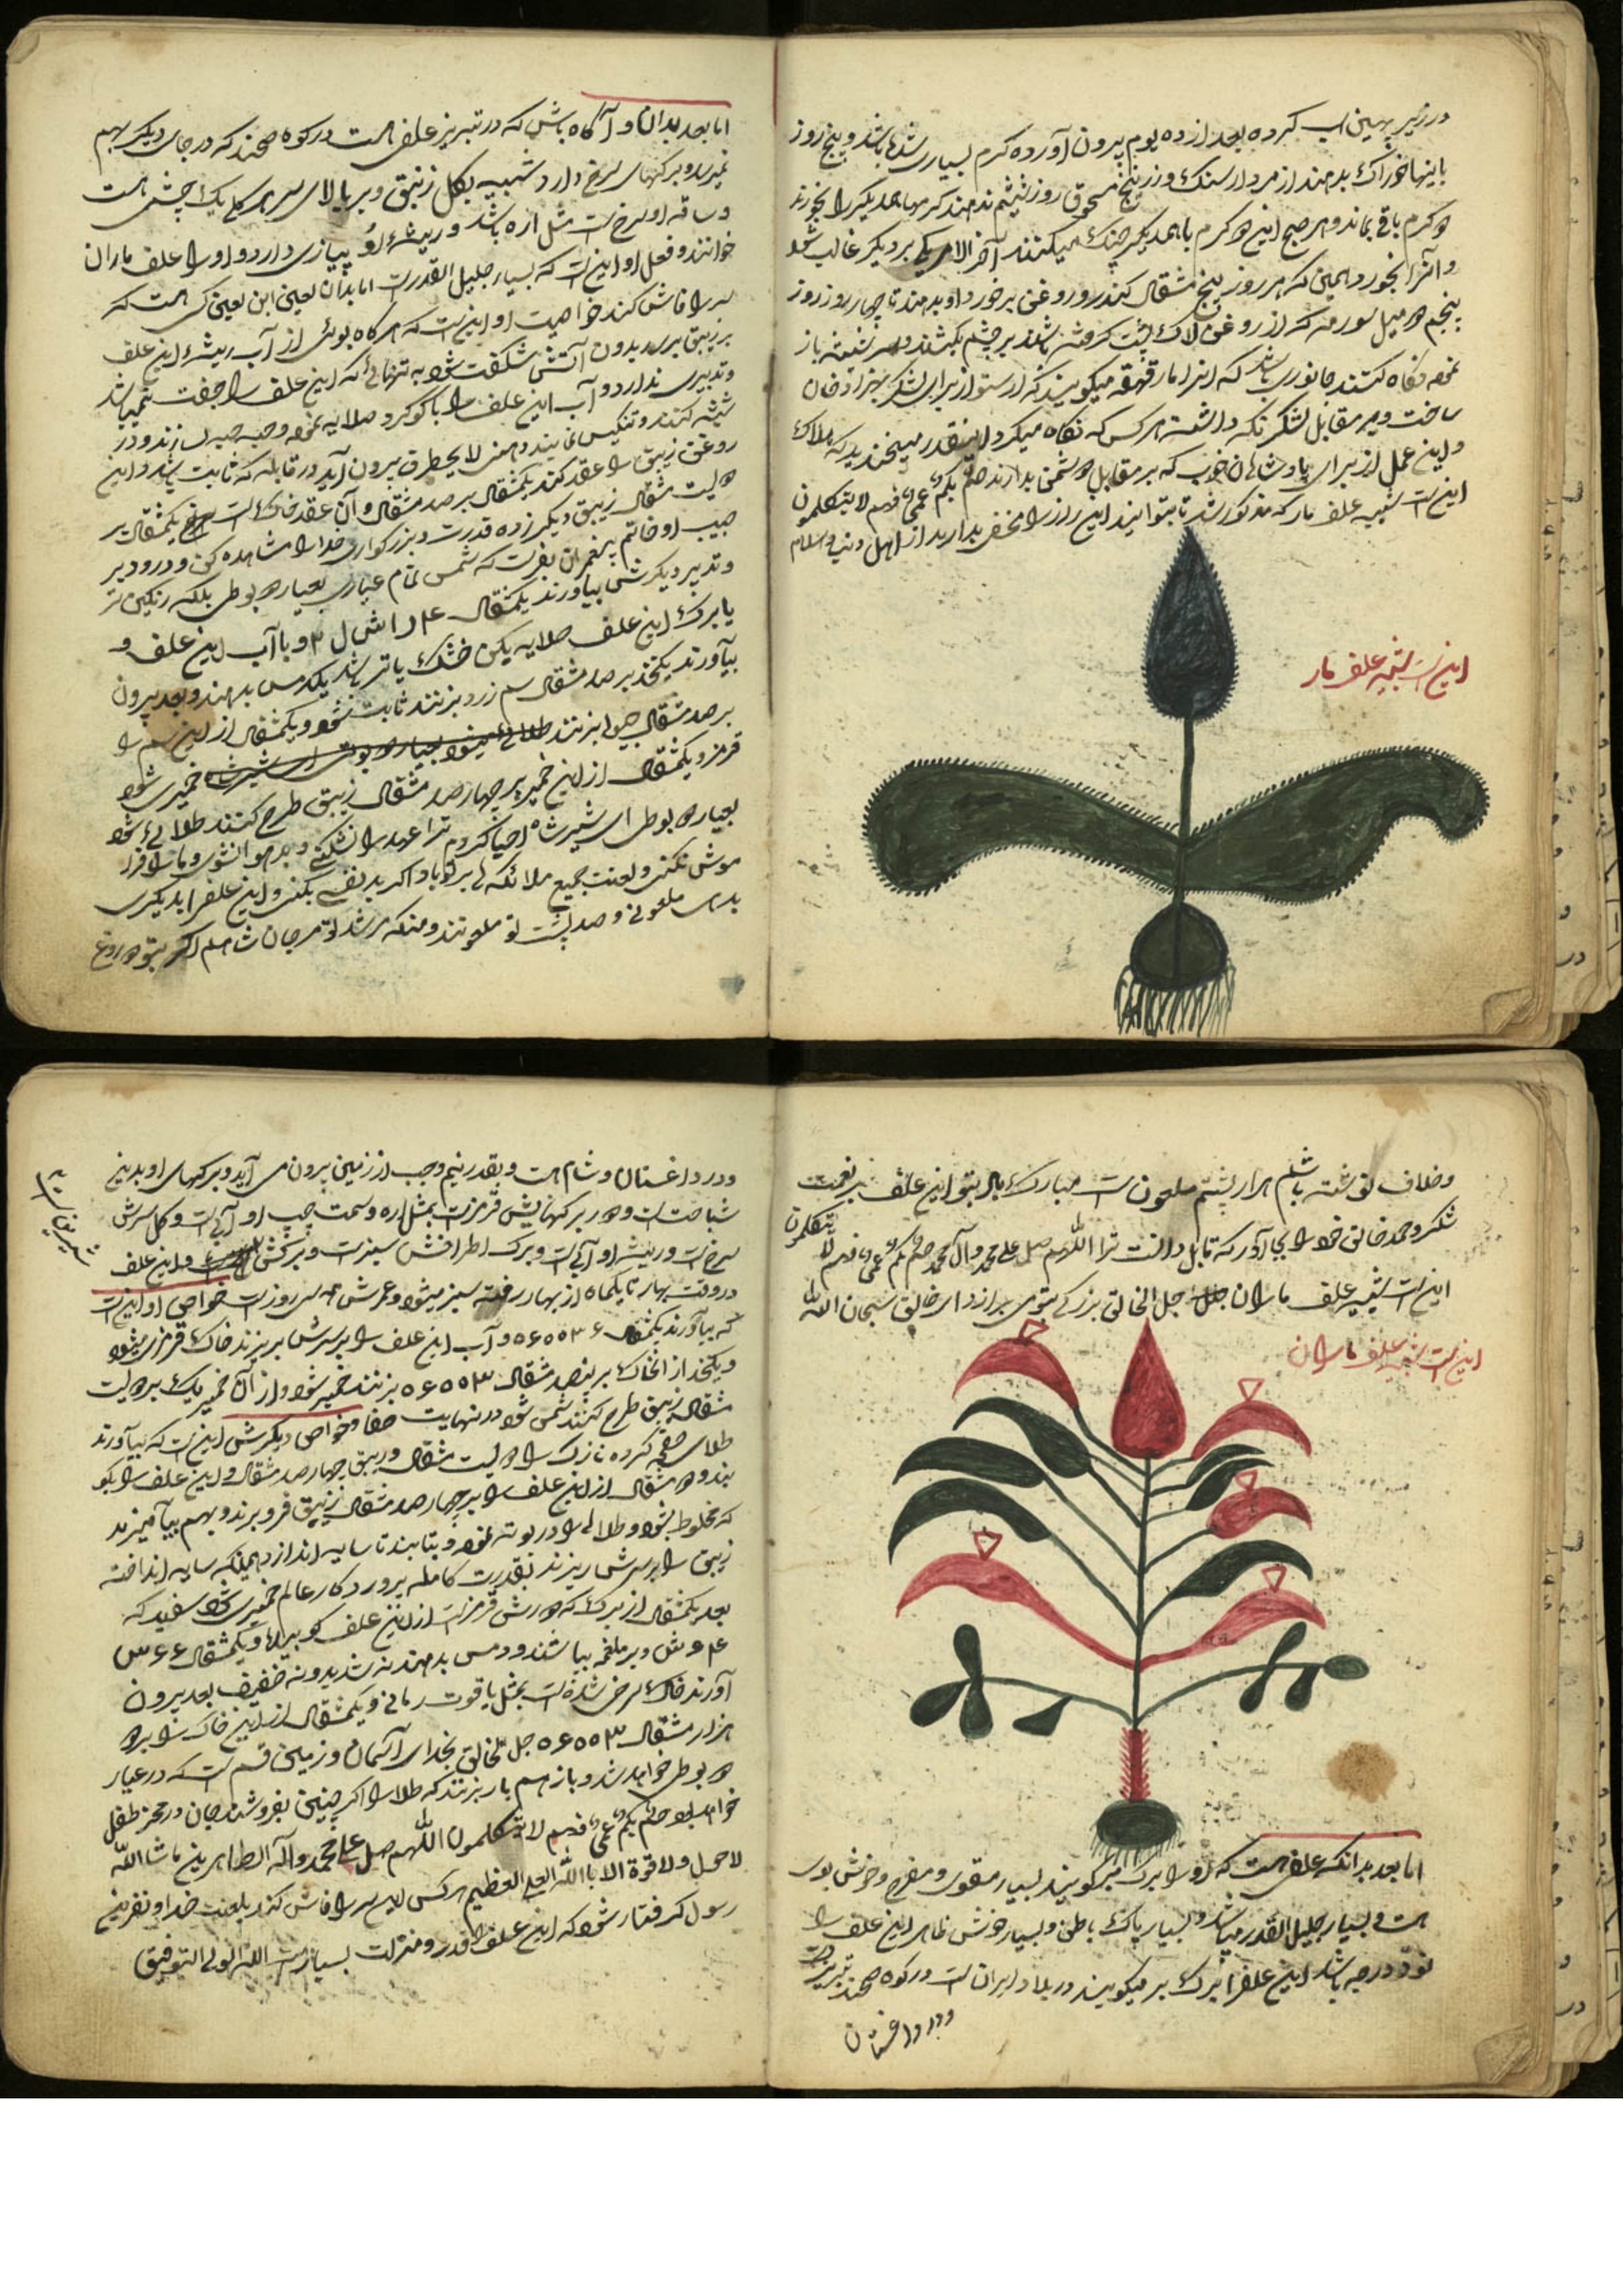 در زیر پهین اسب کرده بعد از ده یوم بیرون آورده کرم بسیاری شده باشد و پنج روز
باینها خوراک بدهند از مردار سنک و زرنیخ مسحوق روز ششم ندهند کرمها همدیکر را بخورند
دو کرم باقی بماند و هر صبح این دو کرم با همدیکر جنک میکنند آخر الامر یکی بر دیکر غالب شود
و آنرا بخورد همین که هر روز پنج مثقال کندر و روغن بر خورد او بدهند تا چهار روز روز
پنجم دو میل سورمه که از روغن لاک پشت کرفته باشند بر چشم بکشند و سر شیشه باز
نموده نکاه کنند جانوری باشد که انرا مار قهقهه میکویند که ارسطو از برای لشکر
ساخت و بر مقابل لشکر نکه داشته هر کس که نکاه میکرد اینقدر میخندید که هلاک
و این عمل از برای پادشاهان خوب که بر مقابل دشمن بدارند صم بکم عمی فهم لا یتکلمون
این است شبیه علف مار که مذکور شد تا بتوانید این راز را مخفی بدارید از اهل دنیا والسلام
این است شبیه علف مار
اما بعد بدان و آکاه باش که در تبریز علفی هست در کوه سهند که در جای دیکر بهم
نمیرسد و برکهای سرخ دارد شبیه بکل زنبق و بر بالای سر هر کل یک چشمی هست
و ساقه او سرخ است مثل اره باشد و ریشه او پیازی دارد و او را علف ماران
خوانند و فعل او این است که بسیار جلیل القدر است اما بدان لعین ابن لعین کسی هست که
سر را فاش کند خواصیت او این است که هر کاه بوئی از آب ریشه این علف
بر زیبق برسد بدون آتش شکفت شود به تنهائی که این علف را جفت نمیباشد
و تدبیری ندارد و آب این علف را با کوکرد صلایه نموده و حب حب سازند و در
شیشه کنند و تنکیس نمایند دهنی لا یحطرق بیرون آید در قابله که ثابت باشد و این
روغن زیبق را عقد کند یکمثقال بر صد مثقال و آن عقد خاک است یکمثقال بر
دویست مثقال زیبق دیکر زده قدرت و بزرکواری خدا را مشاهده کن و درود بر
حبیب او خاتم پیغمبران بفرست که شمس تمام عیاری بعیار دو بوطی بلکه رنکین تر
و تدبیر دیکرش بیاورند یکمثقال و با آب این علف و
یا برک این علف صلایه بکن خشک یا تر باشد یکدمس بدهند و بعد بیرون
بیآورند یکنخد بر صد مثقال سم زرد بزنند ثابت شود و یکمثقال از این سم را
بر صد مثقال جیوا بزنند خمیری شود
قرمز و یکمثقال از این خمیر بر چهارصد مثقال زیبق طرح کنند طلائی شود
بعیار دو بوطی ای شیر شاه احیا کردم ترا عهد را نشکنی و بدخو نشوی و ما را فرا
موش نکنی و لعنت جمیع ملائکه ها بر تو باد اکر بد نفسی بکنی و این علف را بدیکری
بدی ملعونی و صد پشت تو ملعونند و منکه مرشد تو مرجان شاهم اکر بتو دروغ
و خلاف نوشته باشم هزار پشتم ملعون است مبارک باد بتو این علف بر نعمت
شکر و حمد خالق خود را بجا آور که قابل دانست ترا اللهم صل علی محمد و آل محمد صم بکم عمی فهم لا یتکلمون
این است شبیه علف ماران جل جل الخالق بزرکی بتو می برازد ای خالق سبحان الله
این است شبیه علف ماران
اما بعد بدانکه علفی هست که او را برک بر کویند بسیار مقوی و مفرح و خوش بوی
هست و بسیار جلیل القدر میباشد و بسیار پاک باطن و بسیار خوش ظاهر این علف را
نود درجه باشد این علف را برک بر میکویند در بلاد ایران است در کوه سهند تبریز است
و در داغستان
و در داغستان و شام هست و بقدر نیم وجب از زمین بیرون می آید و برکهای او بدین
شباهت است و دور برکهایش قرمز است بمثل اره و سمت چپ او آبی است و کل سرش
سرخ است و ریشه او آبی است و برک اطرافش سبز است و این علف
در وقت بهار تا یکماه از بهار رفته سبز میشود و عمرش سی روز است خواص او این است
که بیآورند یکمثقال و آب این علف را بر سرش بریزند خاک قرمزی بشود
و یکنخد از انخاک بر پنصد مثقال بزنند خمیر شود و از آن خمیر یک بر دویست
مثقال زیبق طرح کنند شمس شود در نهایت صفا و خواص دیکرش این است که بیآورند
طلای صفحه کرده نازک را دویست مثقال و زیبق چهار صد مثقال و این علف را بکو
بند و ده مثقال از این علف را بر چهار صد مثقال زیبق فرو برند و بهم بیآمیزند
که مخلوط بشود و طلا را در بوته نموده و بتابند تا سایه اندازد همینکه سایه انداخته
زیبق را بر سرش ریزند بقدرت کامله پروردکار عالم خمیری شود سفید که
بعد یکمثقال از برک که دورش قرمز است از این علف کوبیده و یکمثقال
و بر ملغمه بپاشند و دمس بدهند نه شدید و نه خفیف بعد بیرون
آورند خاک سرخی شده است بمثل یاقوت رمانی و یکمثقال از این خاک را بر دو
هزار مثقال جل الخالق بخدای آسمان و زمین قسم است که در عیار
دو بوطی خواهد شد و باز هم بار بزنند که طلا را اکر چنین بفروشند جان در خطر
خواهد بود صم بکم عمی فهم لا یتکلمون اللهم صل علی محمد و آله الطاهرین ما شاء الله
لا حول و لا قوة الا بالله العلی العظیم هر کس این سر را فاش کند بلعنت خدا و نفرین
رسول کرفتار شود که این علف را قدر و منزلت بسیار است الله الولی التوفیق